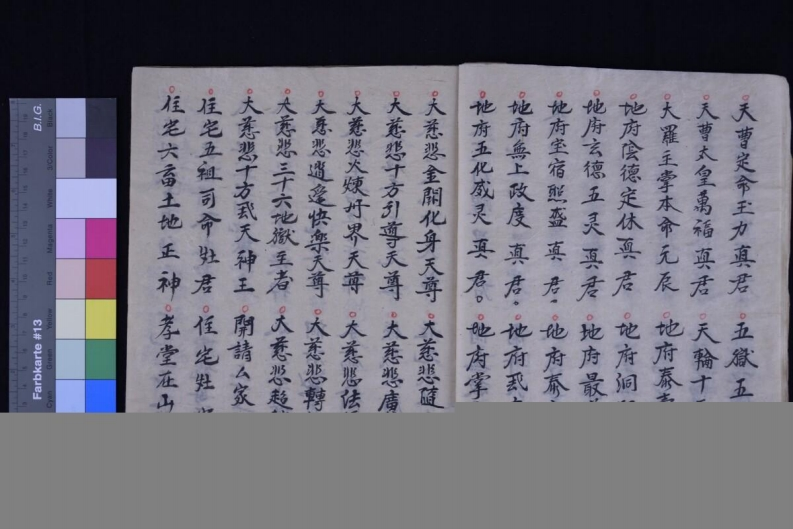 天曹定命玉力真君 五嶽五
天曹太皇萬福真君 天輪十
大羅主掌本命元辰 地府泰
地府陰德定休真君 地府洞
地府玄德五灵真君 地府最
地府宝宿照盛真君 地府泰
地府無上政度真君 地府
地府五化威灵真君 地府掌
大慈悲金闕化身天尊 大慈悲隨
大慈悲十方引導天尊 大慈悲廣
大慈悲火煉丹界天尊 大慈悲法
大慈悲逍遥快樂天尊 大慈悲轉
大慈悲三十六地獄主者 大慈悲超
大慈悲十方武天神王 開請厶家
住宅五祖司命灶君 住宅灶
住宅六畜土地正神 孝堂在山
B.I.G.
Farbkarte #13
Black
3/Color
White
Magenta
Red
Yellow
Green
Cyan